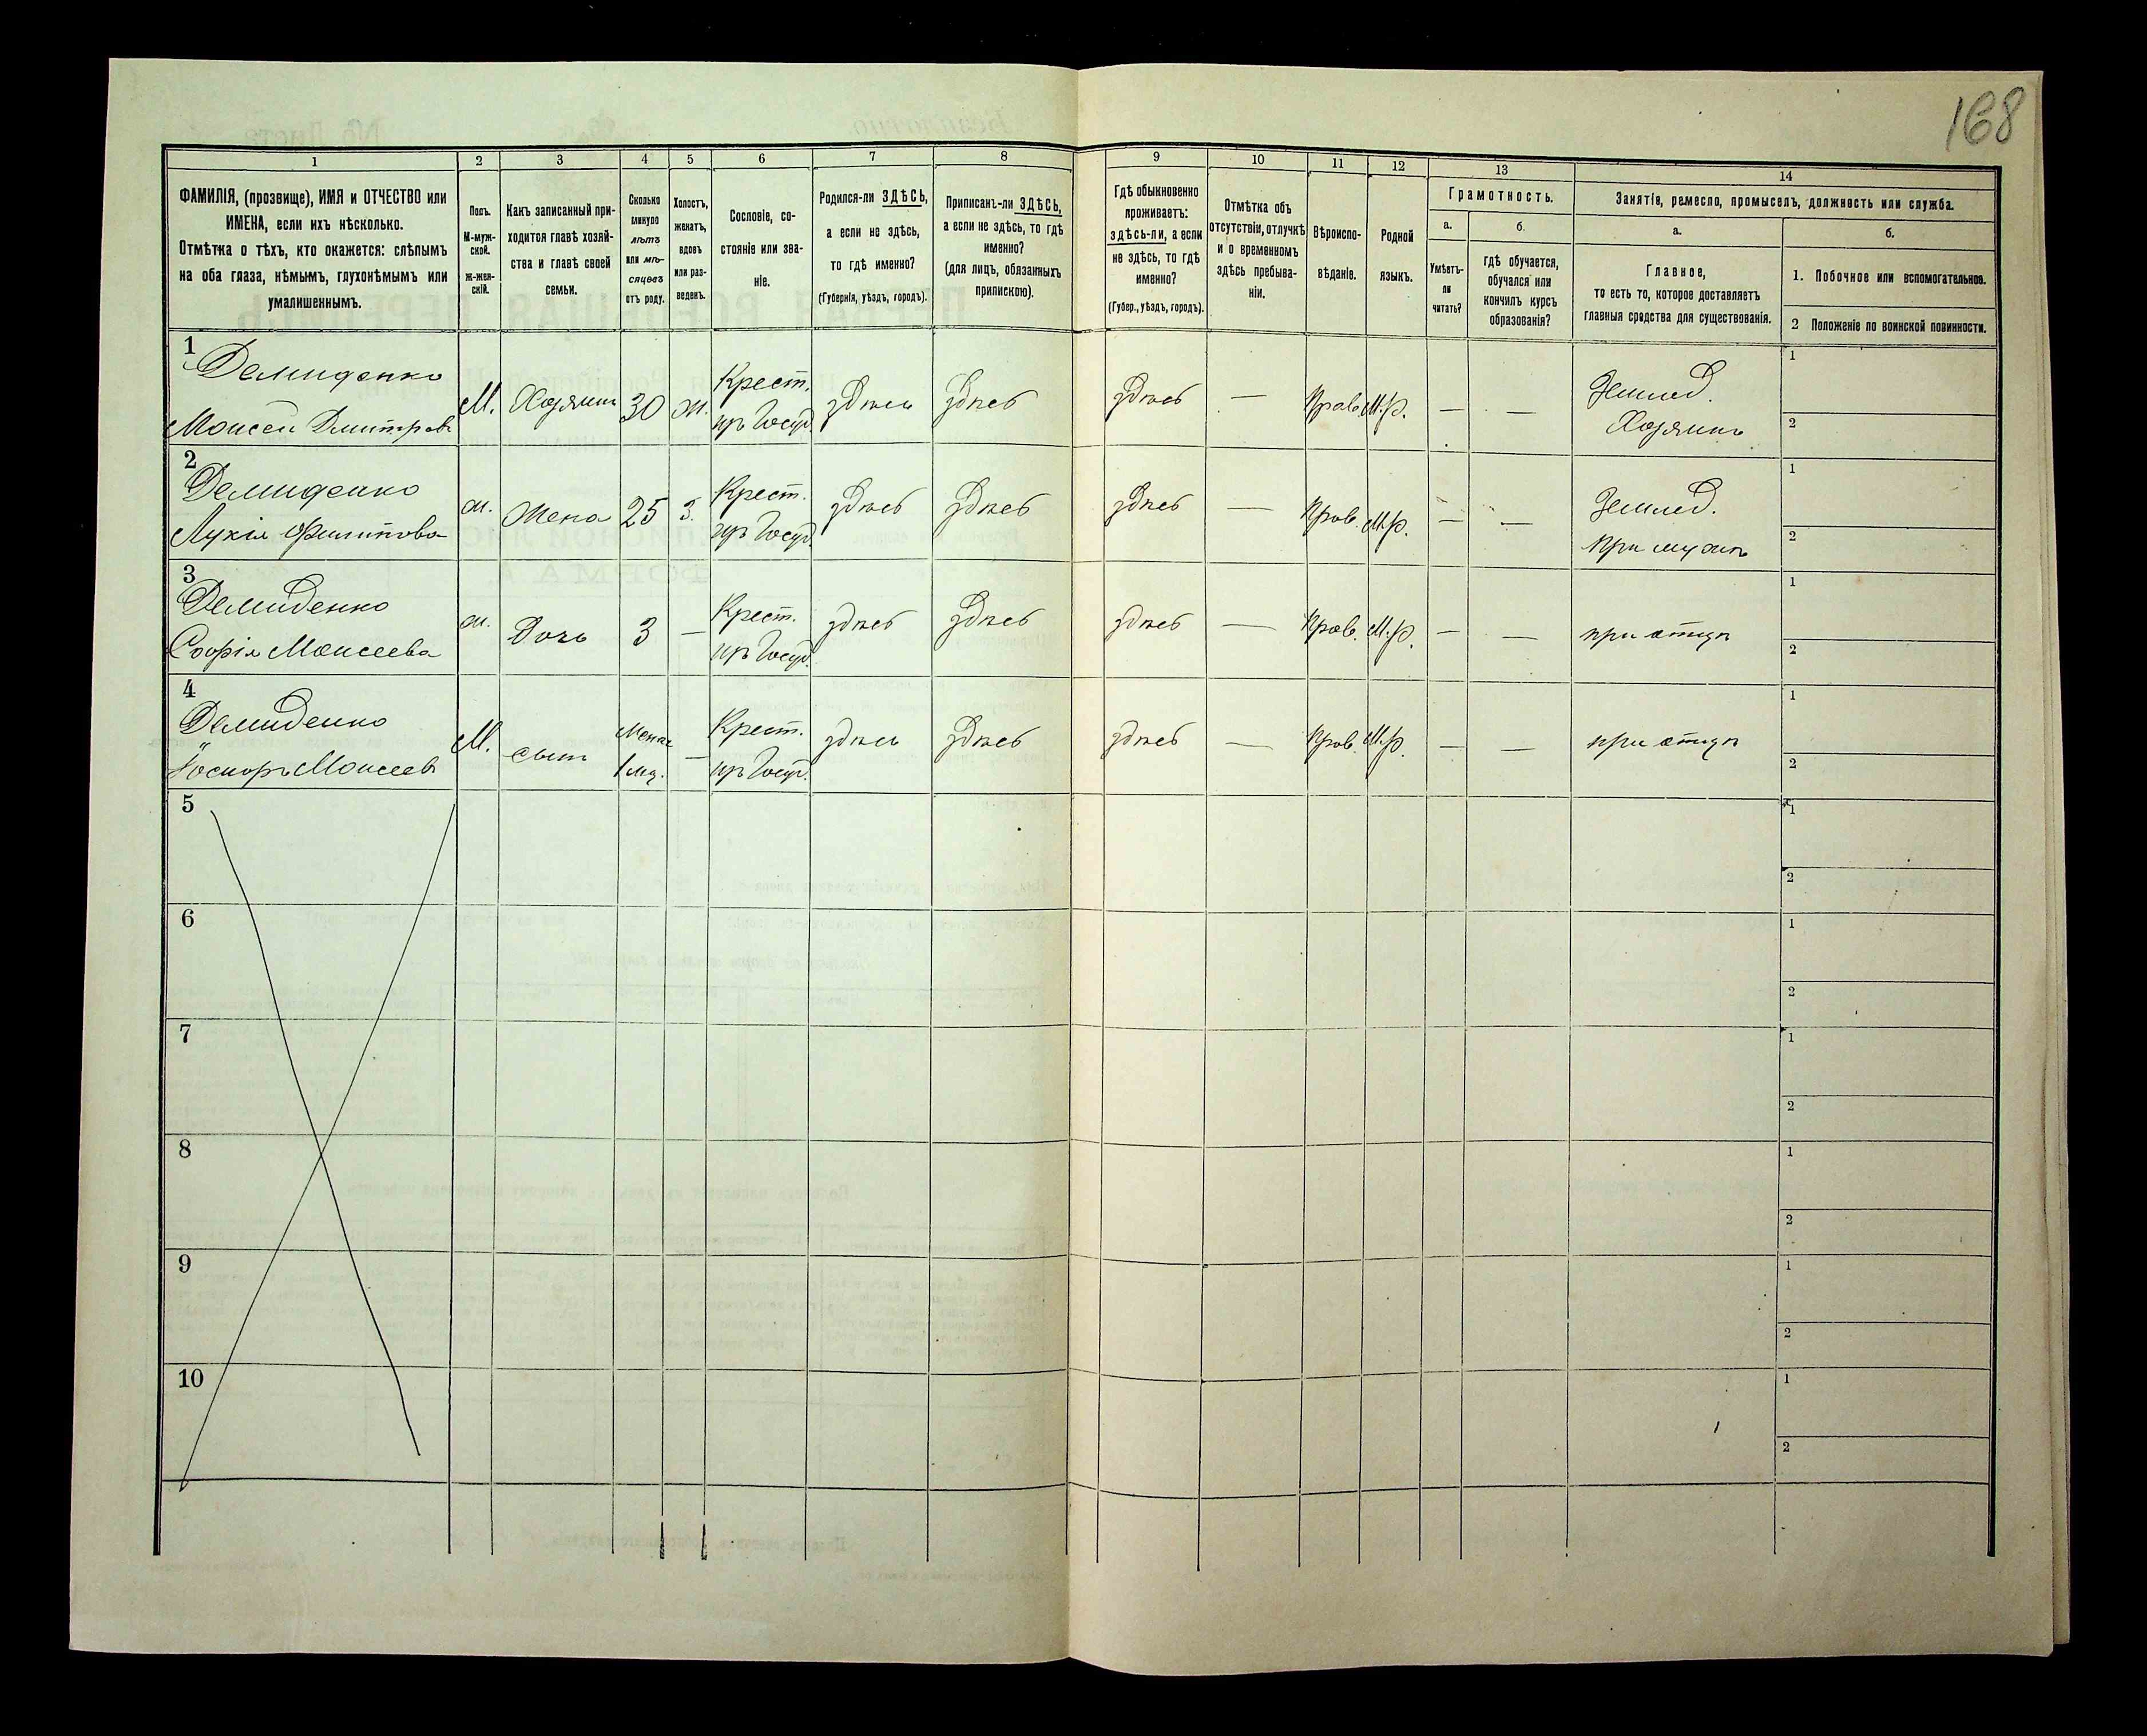 168
1 2 3 4 5 6 7 8 9 10 11 12 13 14
ФАМИЛІЯ, (прозвище), ИМЯ и ОТЧЕСТВО или
ИМЕНА, если ихъ нѣсколько.
Отмѣтка о тѣхъ, кто окажется: слѣпымъ
на оба глаза, нѣмымъ, глухонѣмымъ или
умалишеннымъ.
Полъ.
М-муж-
ской.
Ж-жен-
скій.
Какъ записанный при-
ходится главѣ хозяй-
ства и главѣ своей
семьи.
Сколько
минуло
лѣтъ
или мѣ-
сяцевъ
отъ роду.
Холостъ,
женатъ,
вдовъ
или раз-
веденъ.
Сословіе, со-
стояніе или зва-
ніе.
Родился-ли ЗДѢСЬ,
а если не здѣсь,
то гдѣ именно?
(Губернія, уѣздъ, городъ).
Приписанъ-ли ЗДѢСЬ,
а если не здѣсь, то гдѣ
именно?
(для лицъ, обязанныхъ
припискою).
Гдѣ обыкновенно
проживаетъ:
здѣсь-ли, а если
не здѣсь, то гдѣ
именно?
(Губер., уѣздъ, городъ).
Отмѣтка объ
отсутствіи, отлучкѣ
и о временномъ
здѣсь пребыва-
ніи.
Вѣроиспо-
вѣданіе.
Родной
языкъ.
Грамотность.
а.
Умѣетъ-
ли
читать?
б.
гдѣ обучается,
обучался или
кончилъ курсъ
образованія?
Занятіе, ремесло, промыселъ, должность или служба.
а.
Главное,
то есть то, которое доставляетъ
главныя средства для существованія.
б.
1. Побочное или вспомогательное.
2 Положеніе по воинской повинности.
1
Демиденко
Моисей Дмитровъ
М. Хозяинъ 30 ж.
Крест.
изъ Госуд.
здѣсь здѣсь здѣсь — Прав. М.р. — —
Землед.
Хозяинъ
1
2
2
Демиденко
Лукія Филипова
ж. Жена 25 З.
Крест.
изъ Госуд.
здѣсь здѣсь здѣсь — Прав. М.р. — —
Землед.
при мужѣ
1
2
3
Демиденко
Софія Моисеева
ж. Дочь 3 —
Крест.
изъ Госуд.
здѣсь здѣсь здѣсь — Прав. М.р. — —
при отцѣ
1
2
4
Демиденко
Моисеевъ
М. сынъ
Менѣе
1 мѣ.
—
Крест.
изъ Госуд.
здѣсь здѣсь здѣсь — Прав. М.р. — —
при отцѣ
1
2
5
1
2
6
1
2
7
1
2
8
1
2
9
1
2
10
1
2